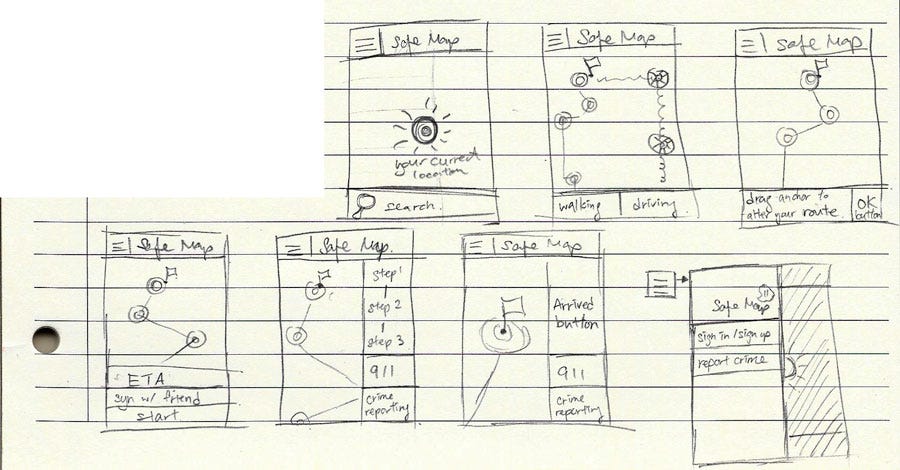 Safe Map
your current
location
search.
Safe Map
walking
driving
Safe Map
drag anchor to
alter your route.
OK
button
Safe Map
ETA
syn w/ friend
start
Safe Map.
step 1
step 2
step 3
911
crime
reporting
Safe Map
Arrived
button
911
crime
reporting
Safe Map
sign in / sign up
report crime